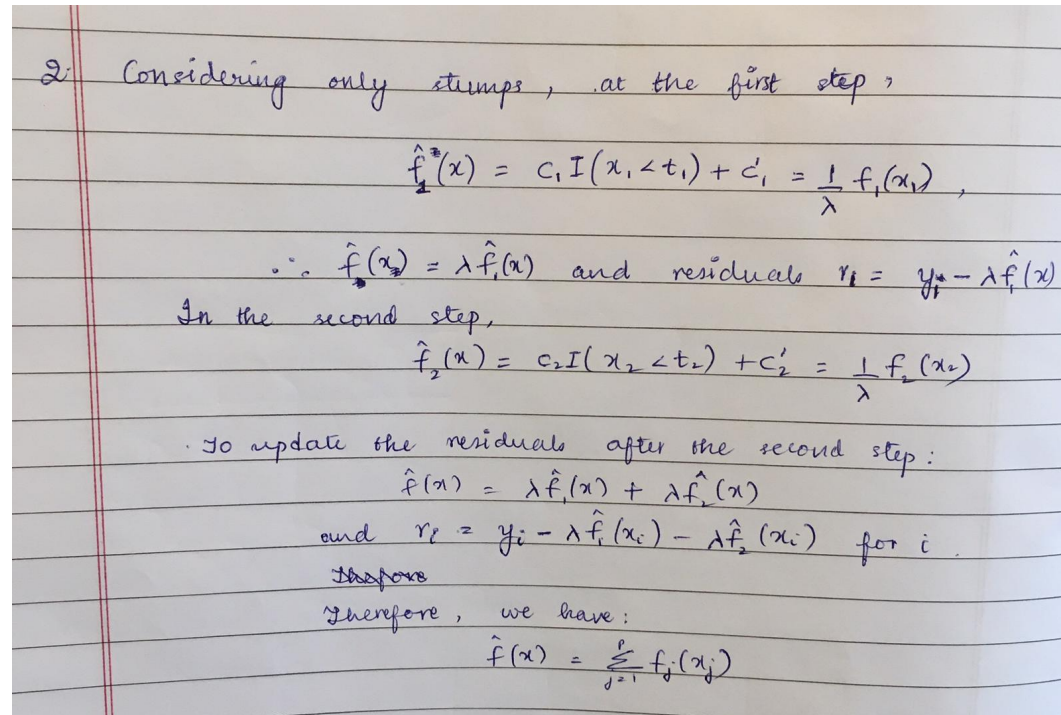 2. Considering only stumps, at the first step,
f̂₁(x) = c₁ I(x₁ < t₁) + c₁' = 1/λ f₁(x₁),
∴ f̂(x) = λf̂₁(x) and residuals rᵢ = yᵢ - λf̂₁(x)
In the second step,
f̂₂(x) = c₂I(x₂ < t₂) + c₂' = 1/λ f₂(x₂)
To update the residuals after the second step:
f̂(x) = λf̂₁(x) + λf̂₂(x)
and rᵢ = yᵢ - λf̂₁(xᵢ) - λf̂₂(xᵢ) for i.
Therefore, we have:
f̂(x) = Σⱼ₌₁ᵖ fⱼ(xⱼ)